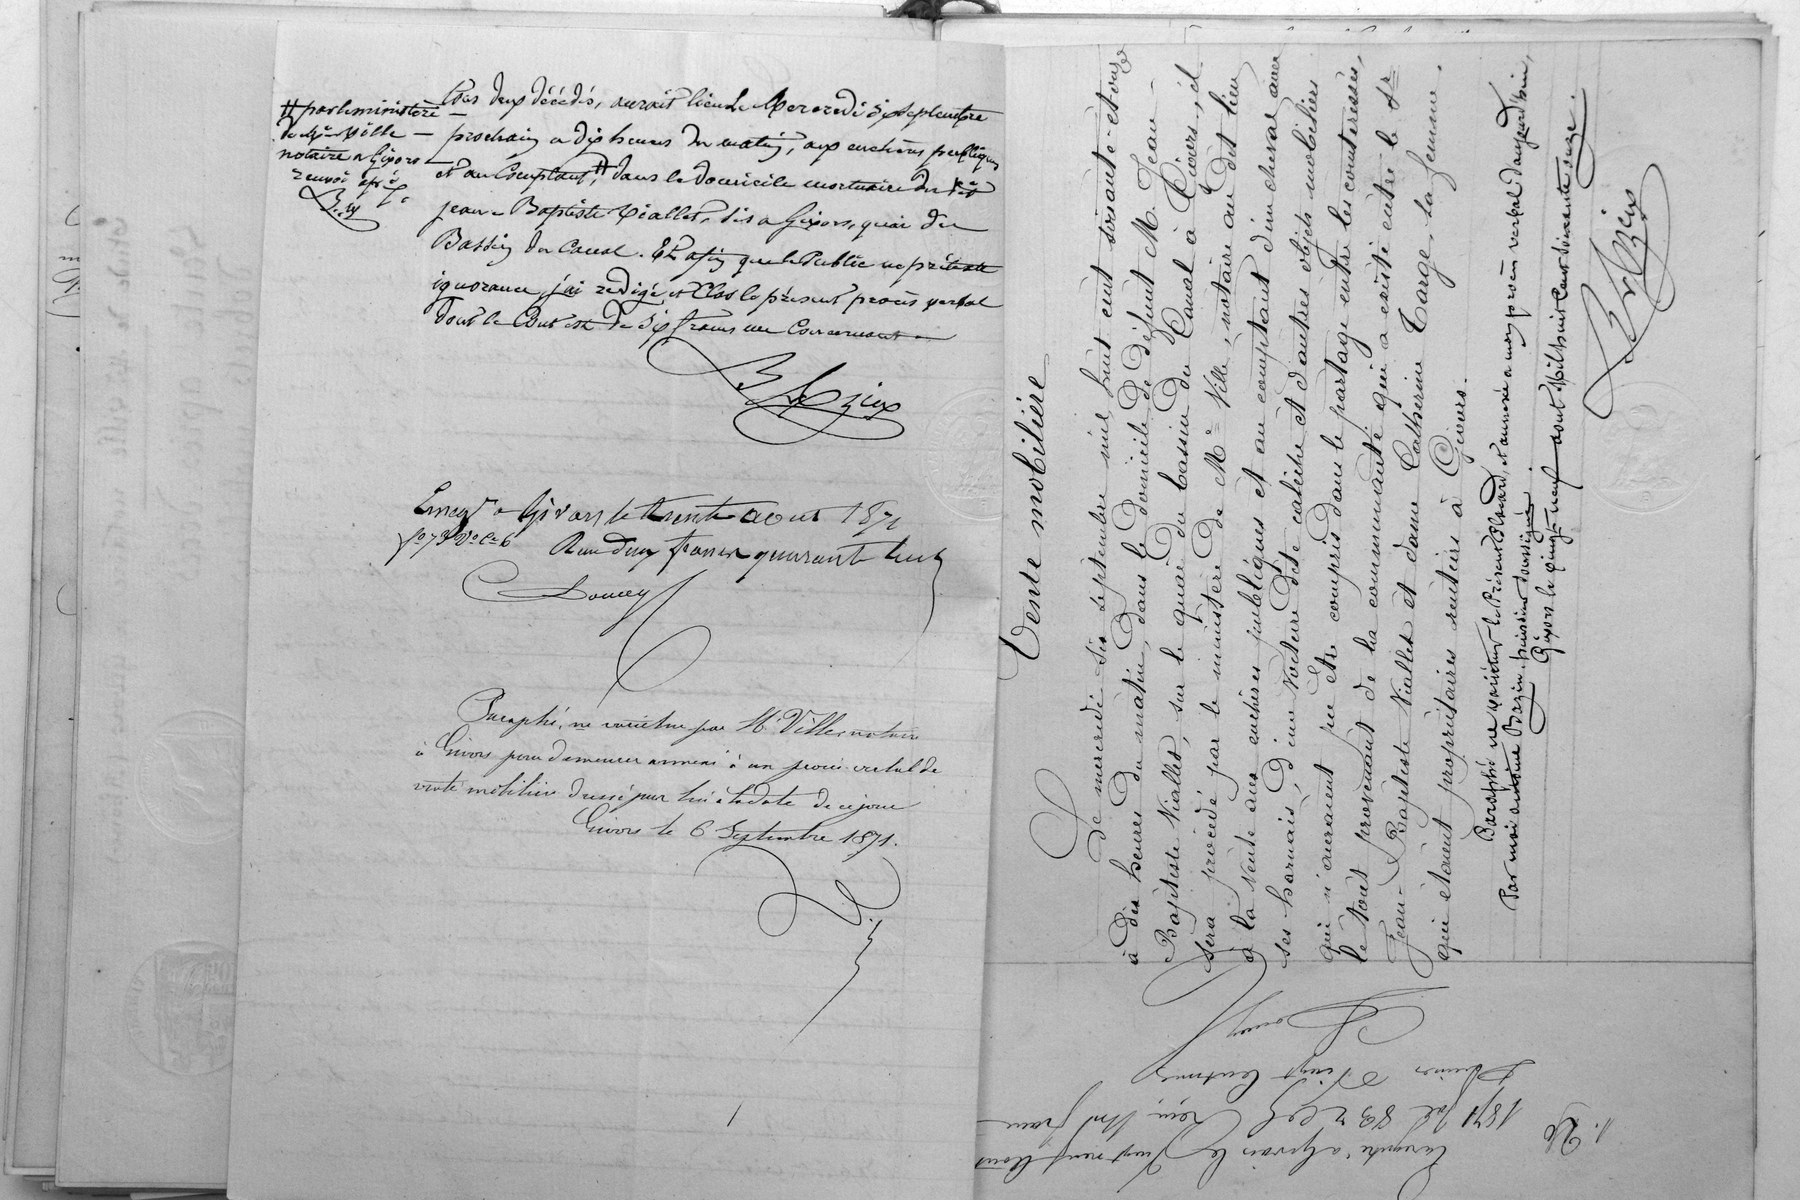 tous deux décédés, aurait lieu le Mercredi six septembre
prochain a dix heures du matin, aux enchères publiques
et au Comptant, # dans le domicile mortuaire du dit
Jean-Baptiste Viallet, sis a Givors, quai du
Bassin du Canal. Et afin que le Public ne prétexte
ignorance, j'ai rédigé et Clos le présent procès verbal
dont le Cout est de six francs
# par le ministère
de Me Ville
notaire a Givors
renvoi
Enreg. a Givors le trente aout 1871
fo 73 Vo Ce 6 Reçu deux francs quarante
Doucey
Paraphé, ne varietur par Me Ville notaire
à Givors pour demeurer annexé à un procès verbal de
vente mobilière dressé par lui à la date de ce jour
Givors le 6 Septembre 1871.
Vente mobilière
Le mercredi six septembre mil huit cent soixante-et-onze
à dix heures du matin, dans le domicile de défunt M. Jean-
Baptiste Viallet, sur le quai du bassin du Canal à Givors, il
sera procédé par le ministère de Me Ville, notaire au dit lieu
à la vente aux enchères publiques et au comptant d'un cheval avec
ses harnais, d'une voiture dite calèche et d'autres objets mobiliers
qui n'auraient pu être compris dans le partage entre les cointéressés,
le tout provenant de la communauté qui a existé entre le Sr
Jean-Baptiste Viallet et dame Catherine Targe, sa femme,
qui étaient propriétaires rentiers à Givors.
Paraphé ne varietur le Présent Placard, et annexé a mon procès verbal d'aujourd'hui,
Par moi Bazin huissier soussigné
Givors le vingt neuf aout Mil huit Cent soixante onze.
Enregistré a Givors le Vingt neuf Aout
1871 fol 83 Reçu Un franc
Vingt Centimes
Doucey